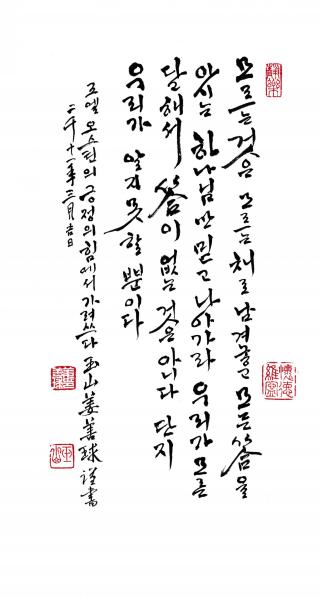 모르는 것은 모르는 채로 남겨놓고 모든 答을
아시는 하나님만 믿고 나아가라 우리가 모른
달해서 答이 없는 것은 아니다 단지
우리가 알지 못할 뿐이다
조엘 오스틴의 긍정의 힘에서 가려쓰다 玉山 姜善球 謹書
二千十一年 三月 吉日